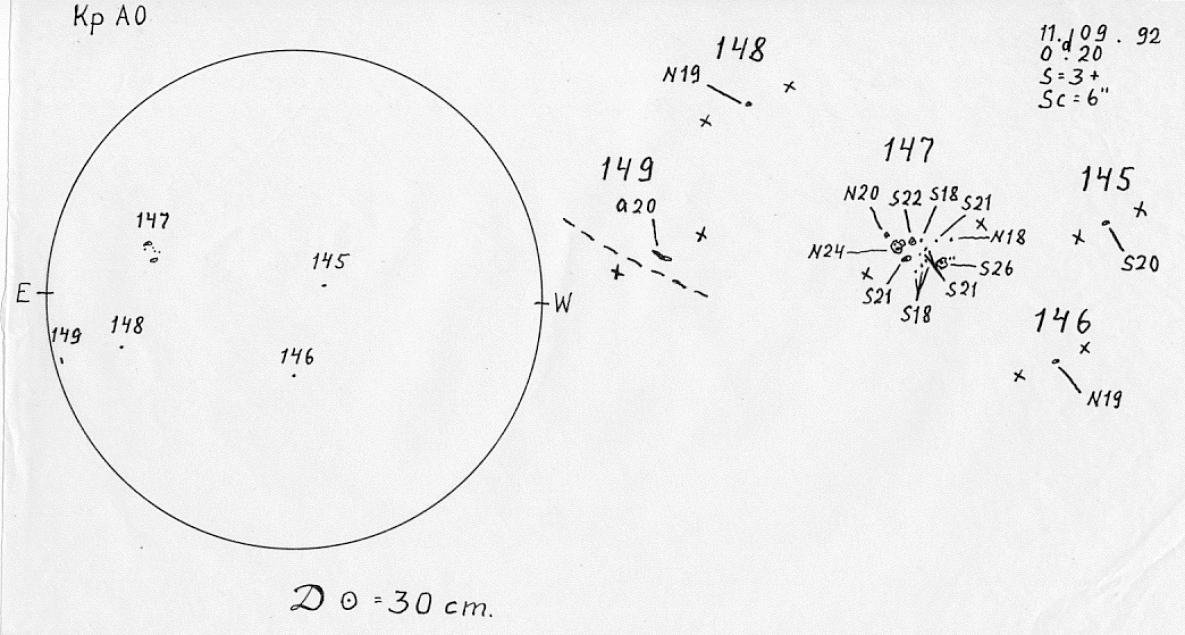 Кр АО
147
145
E
W
149
148
146
D ⊙ = 30 cm.
148
N19
149
a20
147
N20 S22 S18 S21
N18
N24
S26
S21
S21
S18
11.09.92
0.d20
S = 3+
Sc = 6"
145
S20
146
N19